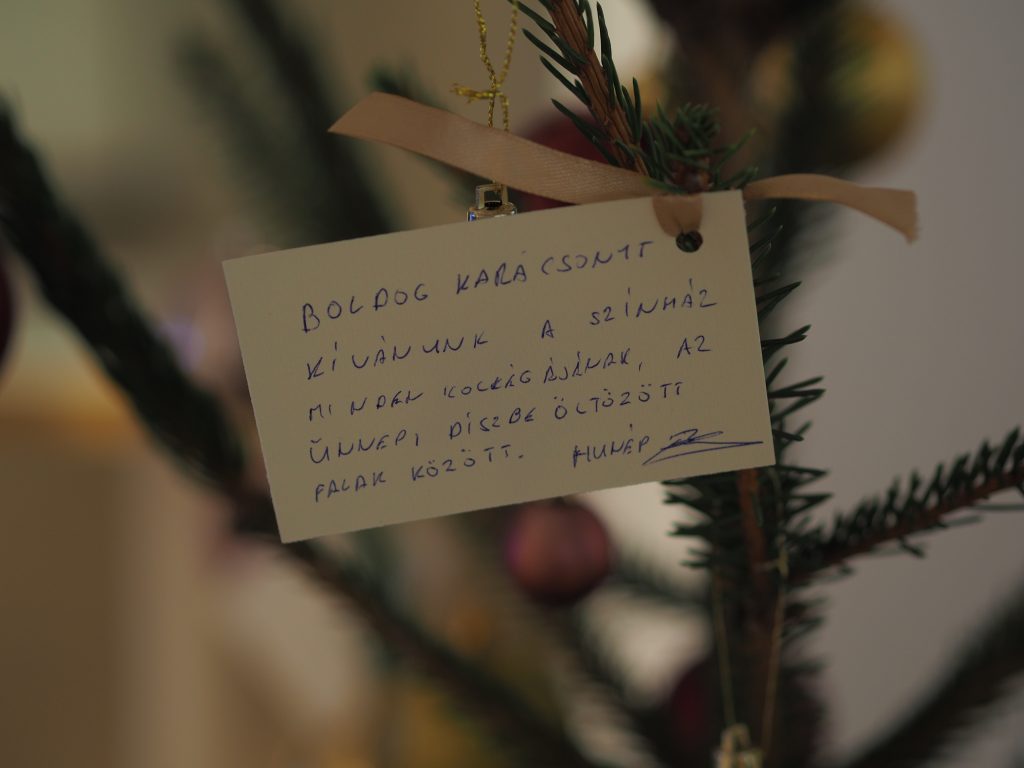 BOLDOG KARÁCSONYT
KÍVÁNUNK A SZÍNHÁZ
MINDEN KOLLÉGÁJÁNAK, AZ
ÜNNEPI DÍSZBE ÖLTÖZÖTT
FALAK KÖZÖTT. HUNÉP